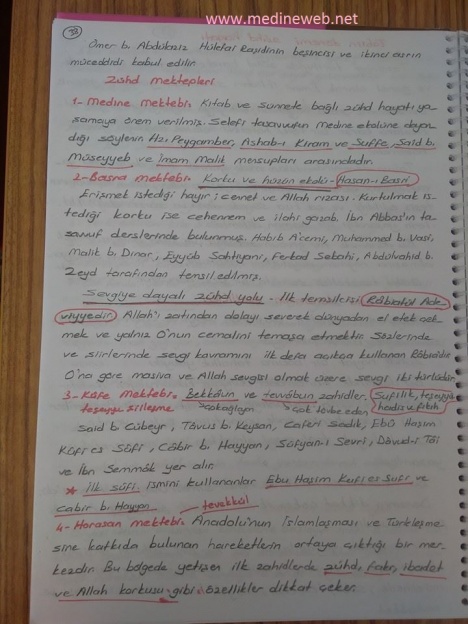 www.medineweb.net
33
Ömer b. Abdülaziz Hülefai Raşidinin beşincisi ve ikinci asrın
müceddidi kabul edilir.
Zühd Mektepleri
1- Medine Mektebi: Kitab ve sünnete bağlı zühd hayatı ya-
şamaya önem verilmiş. Selefi tasavvufun Medine ekolüne dayan-
dığı söylenir. Hz. Peygamber, Ashab-ı Kiram ve Suffe, Said b.
Müseyyeb ve İmam Malik mensupları arasındadır.
2- Basra mektebi: Korku ve hüzün ekolü - Hasan-ı Basri
Erişmek istediği hayır; cennet ve Allah rızası. Kurtulmak is-
tediği korku ise cehennem ve ilahi gasab. İbn Abbas'ın ta-
savvuf derslerinde bulunmuş. Habib A'cemi, Muhammed b. Vasi,
Malik b. Dinar, Eyyüb Sahtiyani, Ferkad Sebahi, Abdülvahid b.
Zeyd tarafından temsil edilmiş.
Sevgiye dayalı zühd yolu - İlk temsilcisi Râbiatül Ade-
viyyedir. Allah'ı zatından dolayı severek dünyadan el etek çek-
mek ve yalnız O'nun cemalini temaşa etmektir. Sözlerinde
ve şiirlerinde sevgi kavramını ilk defa açıkça kullanan Râbiadır.
O'na göre masiva ve Allah sevgisi olmak üzere sevgi iki türlüdür.
3- Kûfe Mektebi: Bekkâun ve tevvâbun zahidler. Sufilik, teşeyyü
teşeyyu sirleşme çokağlayan çok tövbe eden hadis ve fıkıh
Said b. Cübeyr, Tâvus b. Keysan, Caferi Sadık, Ebû Haşim
Kûfi es Sûfi, Câbir b. Hayyan, Süfyan-ı Sevri, Dâvud-i Tâi
ve İbn Semmâk yer alır.
* İlk sûfi ismini kullananlar Ebu Haşim Kufi es Sufi ve
Cabir b. Hayyan
tevekkül
4- Horasan mektebi: Anadolu'nun İslamlaşması ve Türkleşme-
sine katkıda bulunan hareketlerin ortaya çıktığı bir mer-
kezdir. Bu bölgede yetişen ilk zahidlerde zühd, fakr, ibadet
ve Allah korkusu gibi özellikler dikkat çeker.